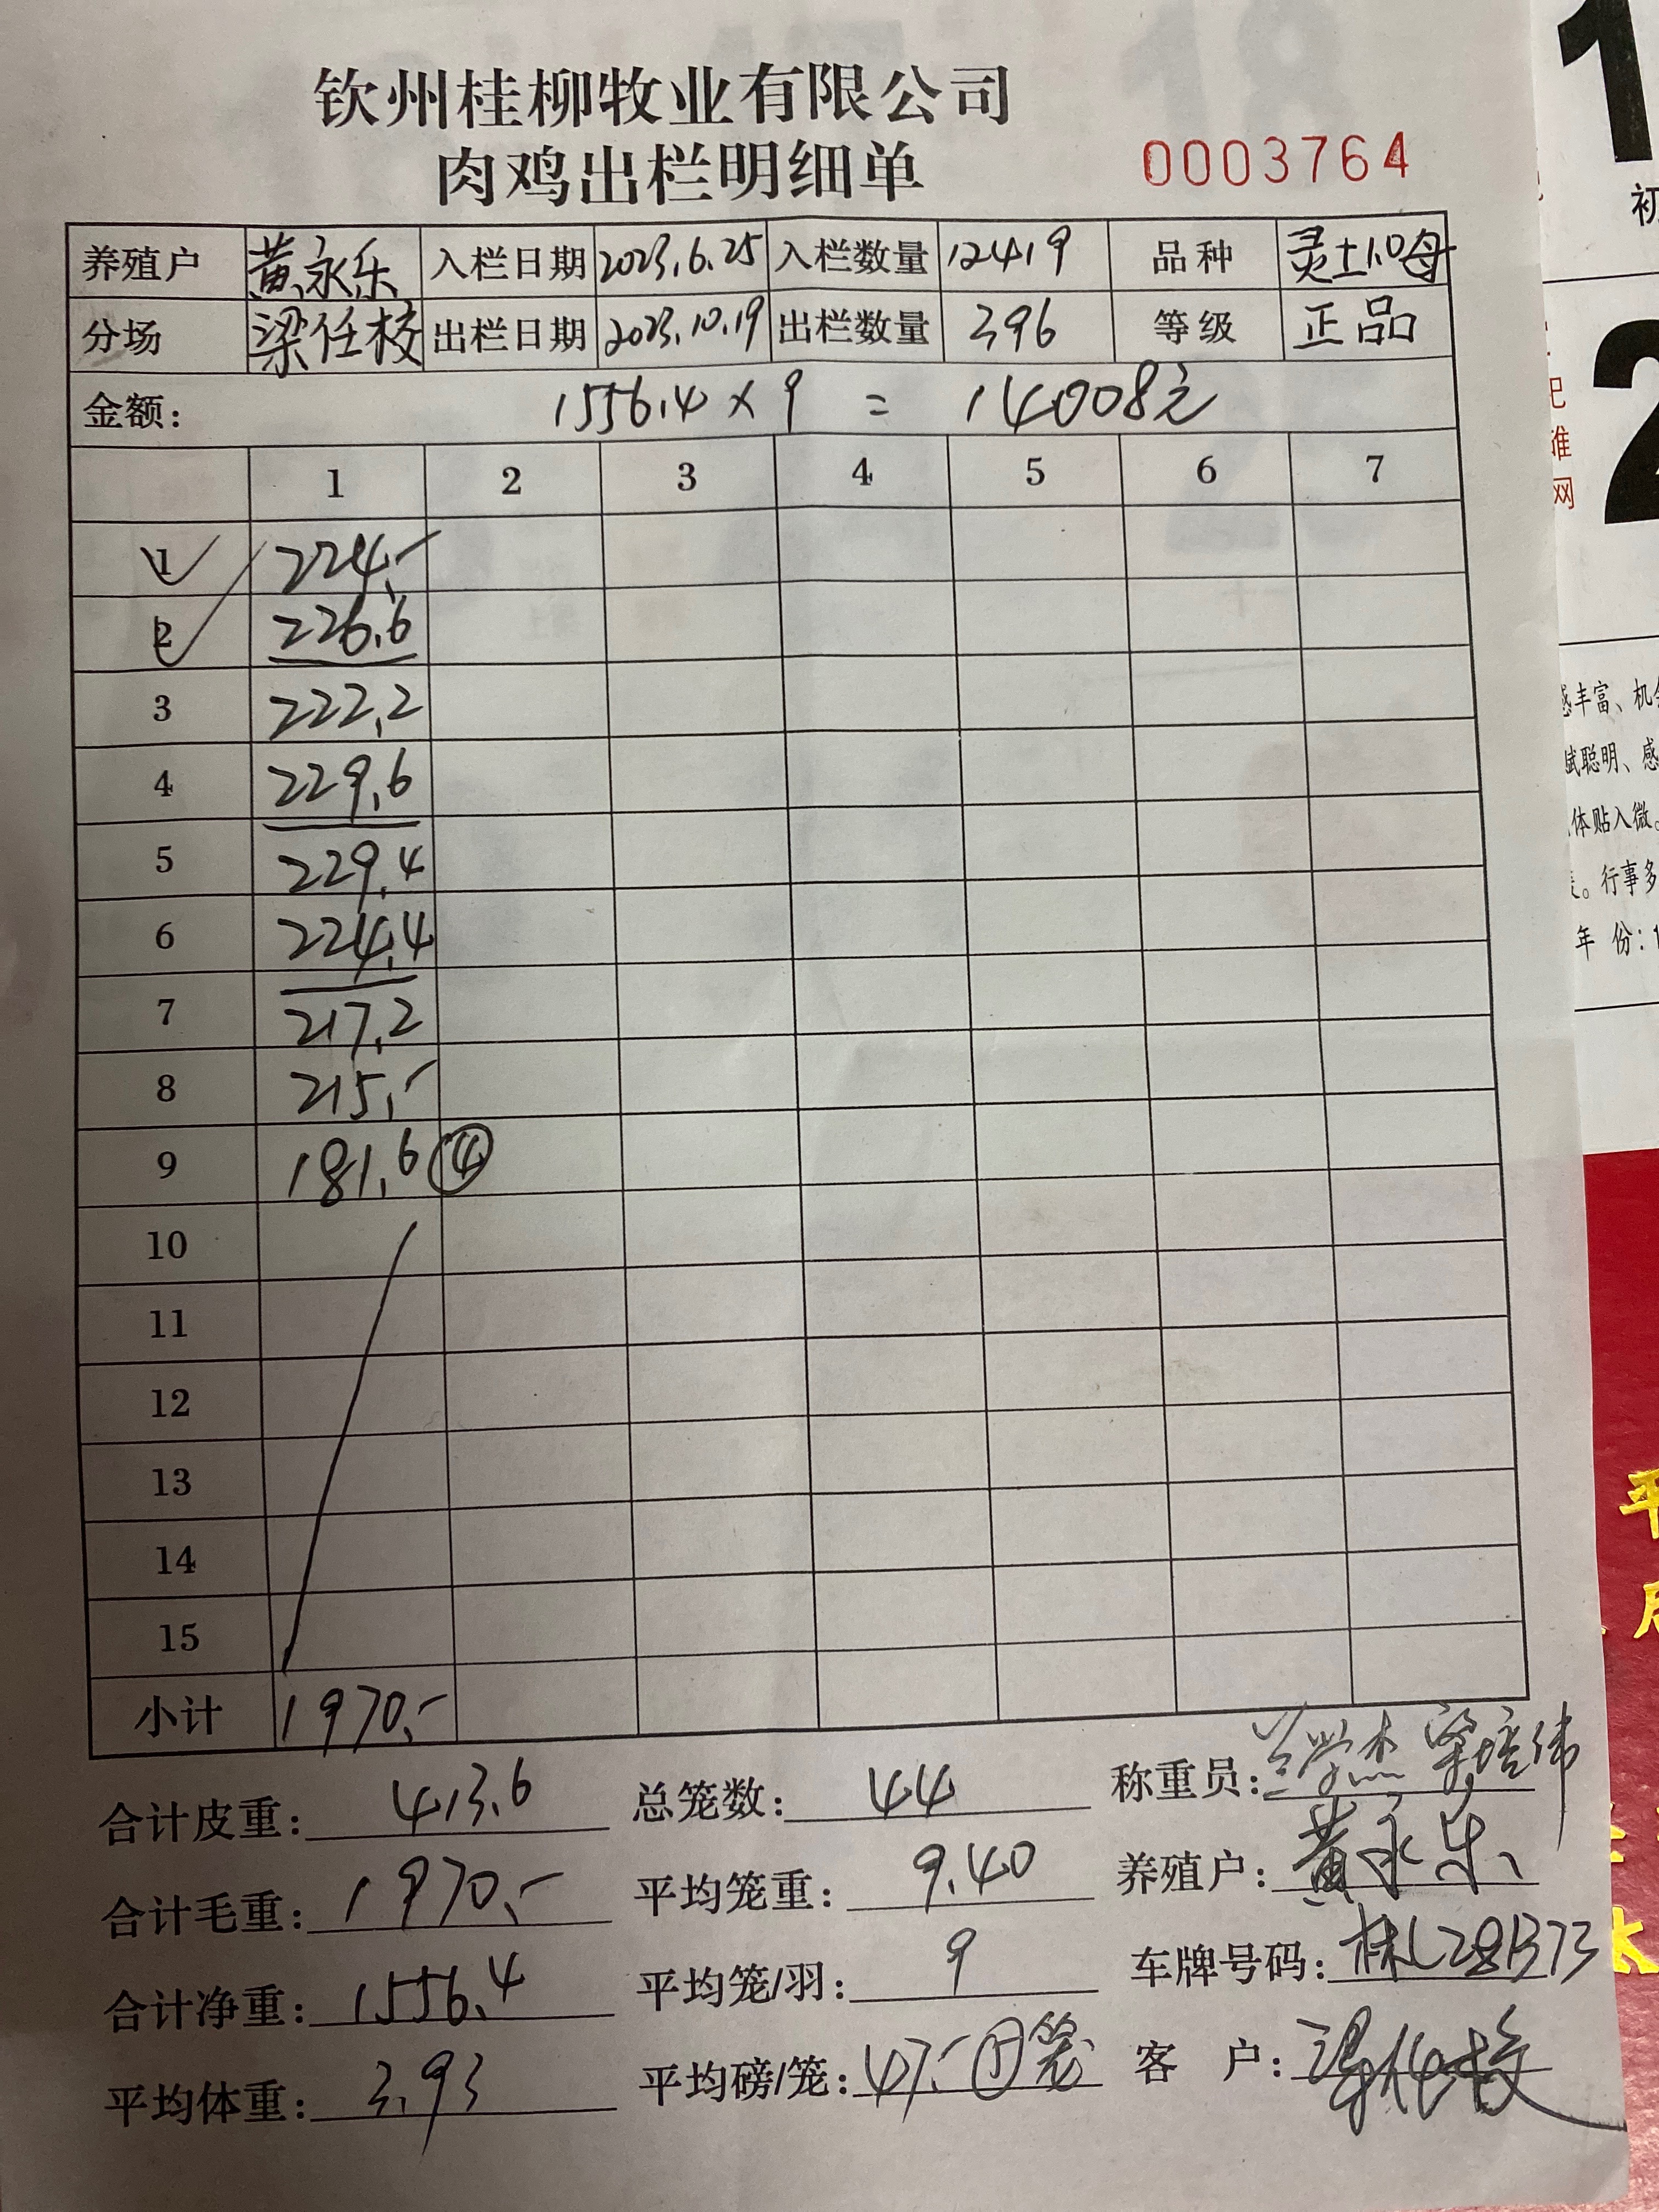 钦州桂柳牧业有限公司
肉鸡出栏明细单 0003764
养殖户 黄永乐 入栏日期 2023.6.25 入栏数量 12419 品种 灵土1.0母
分场 梁任校 出栏日期 2023.10.19 出栏数量 396 等级 正品
金额: 1556.4 × 9 = 14008元
1 2 3 4 5 6 7
1 224.-
2 226.6
3 222.2
4 229.6
5 229.4
6 224.4
7 217.2
8 215.-
9 181.6 ④
10
11
12
13
14
15
小计 1970.-
合计皮重: 413.6 总笼数: 44 称重员:
合计毛重: 1970.- 平均笼重: 9.40 养殖户: 黄永乐
合计净重: 1556.4 平均笼/羽: 9 车牌号码:
平均体重: 3.93 平均磅/笼: 客 户:
1
初
2
网
感丰富、机
聪明、感
体贴入微。
。行事多
年 份:1